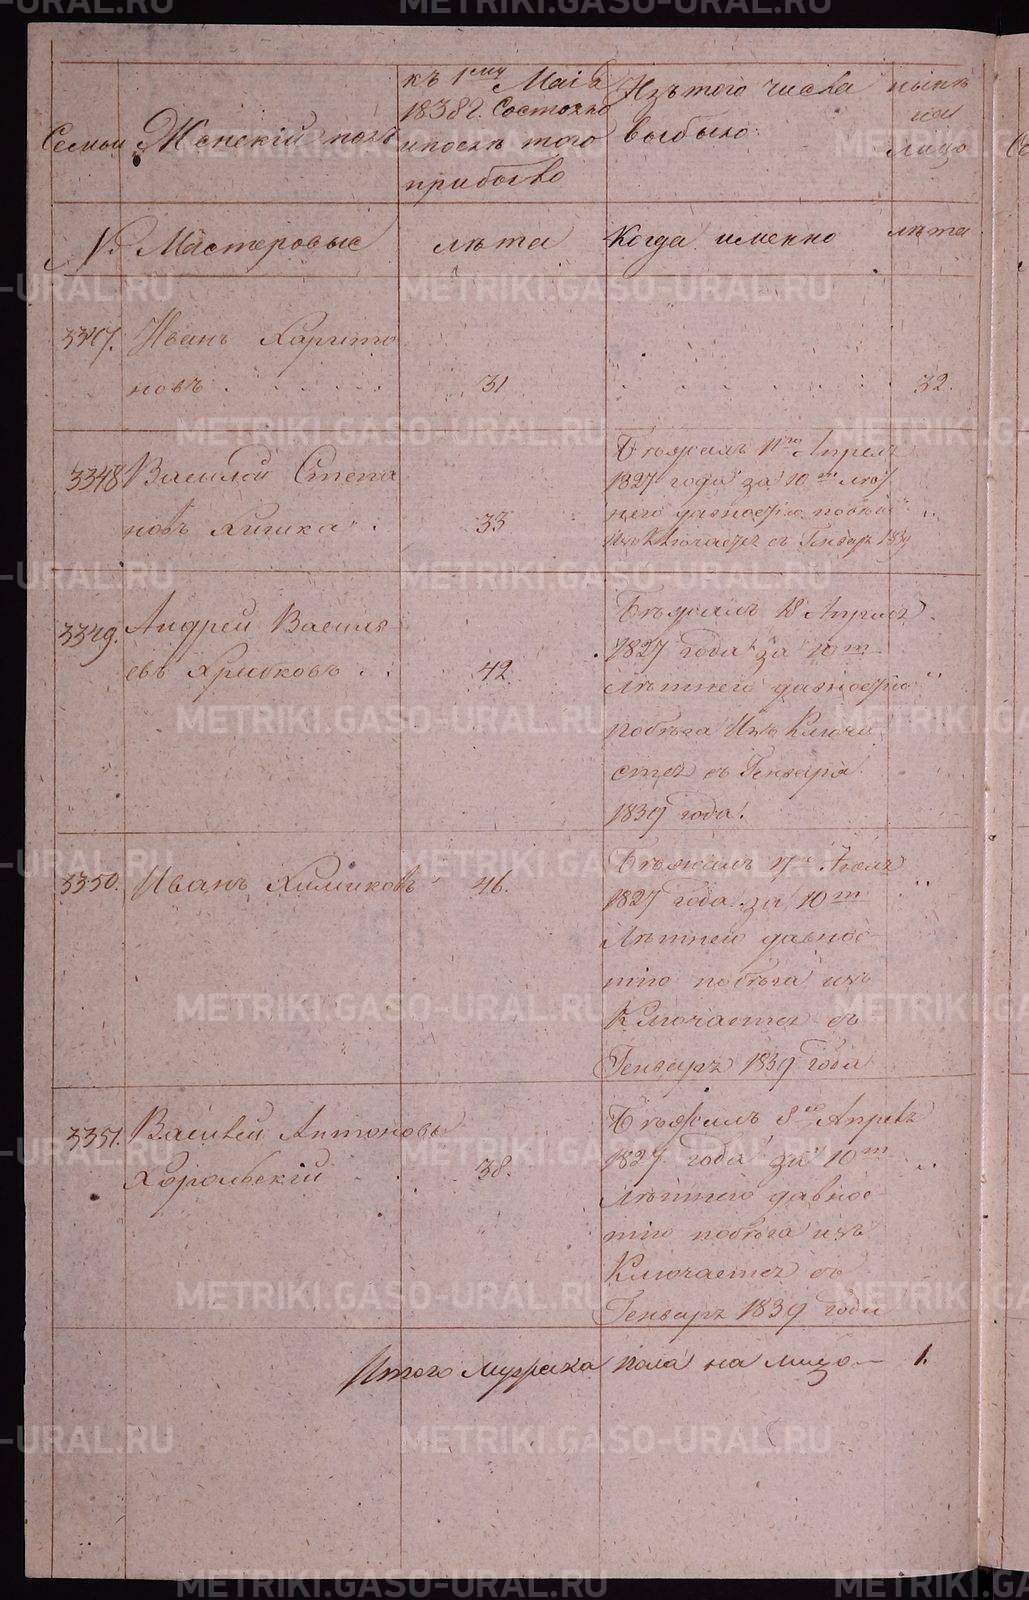 къ 1му Маія
1838г. Состояло
и послѣ того
прибыло
Изъ того числа
выбыло
нынѣ
на
лицо
Семьи Женскій полъ
№ Мастеровые
лѣта
Когда именно
лѣта
3347. Иванъ Харито
новъ 31 32.
3348 Василей Степа
новъ 33
Бѣжалъ 11го Апрелѣ
1827 года за 10ти лѣт
1839
3349. Андрей Василь
евъ Хрюковъ 42
Бѣжалъ 18 Апрелѣ
1827 года за 10ти
лѣтней давностію
побѣга Изъ Ключа
ется съ Генваря
1839 года.
3350. Иванъ Химиковъ 46.
Бѣжалъ
1827 года за 10ти
Лѣтней давнос
тію побѣга изъ
Ключается съ
Генваря 1839 года
3351. Василей Антоновъ
Хорольскій 38.
Бѣжалъ 8го Апрелѣ
1827 года за 10ти
лѣтнего давнос
тію побѣга изъ
Ключается съ
Генваря 1839 года
Итого мужеска пола на лицо 1.
METRIKI.GASO-URAL.RU